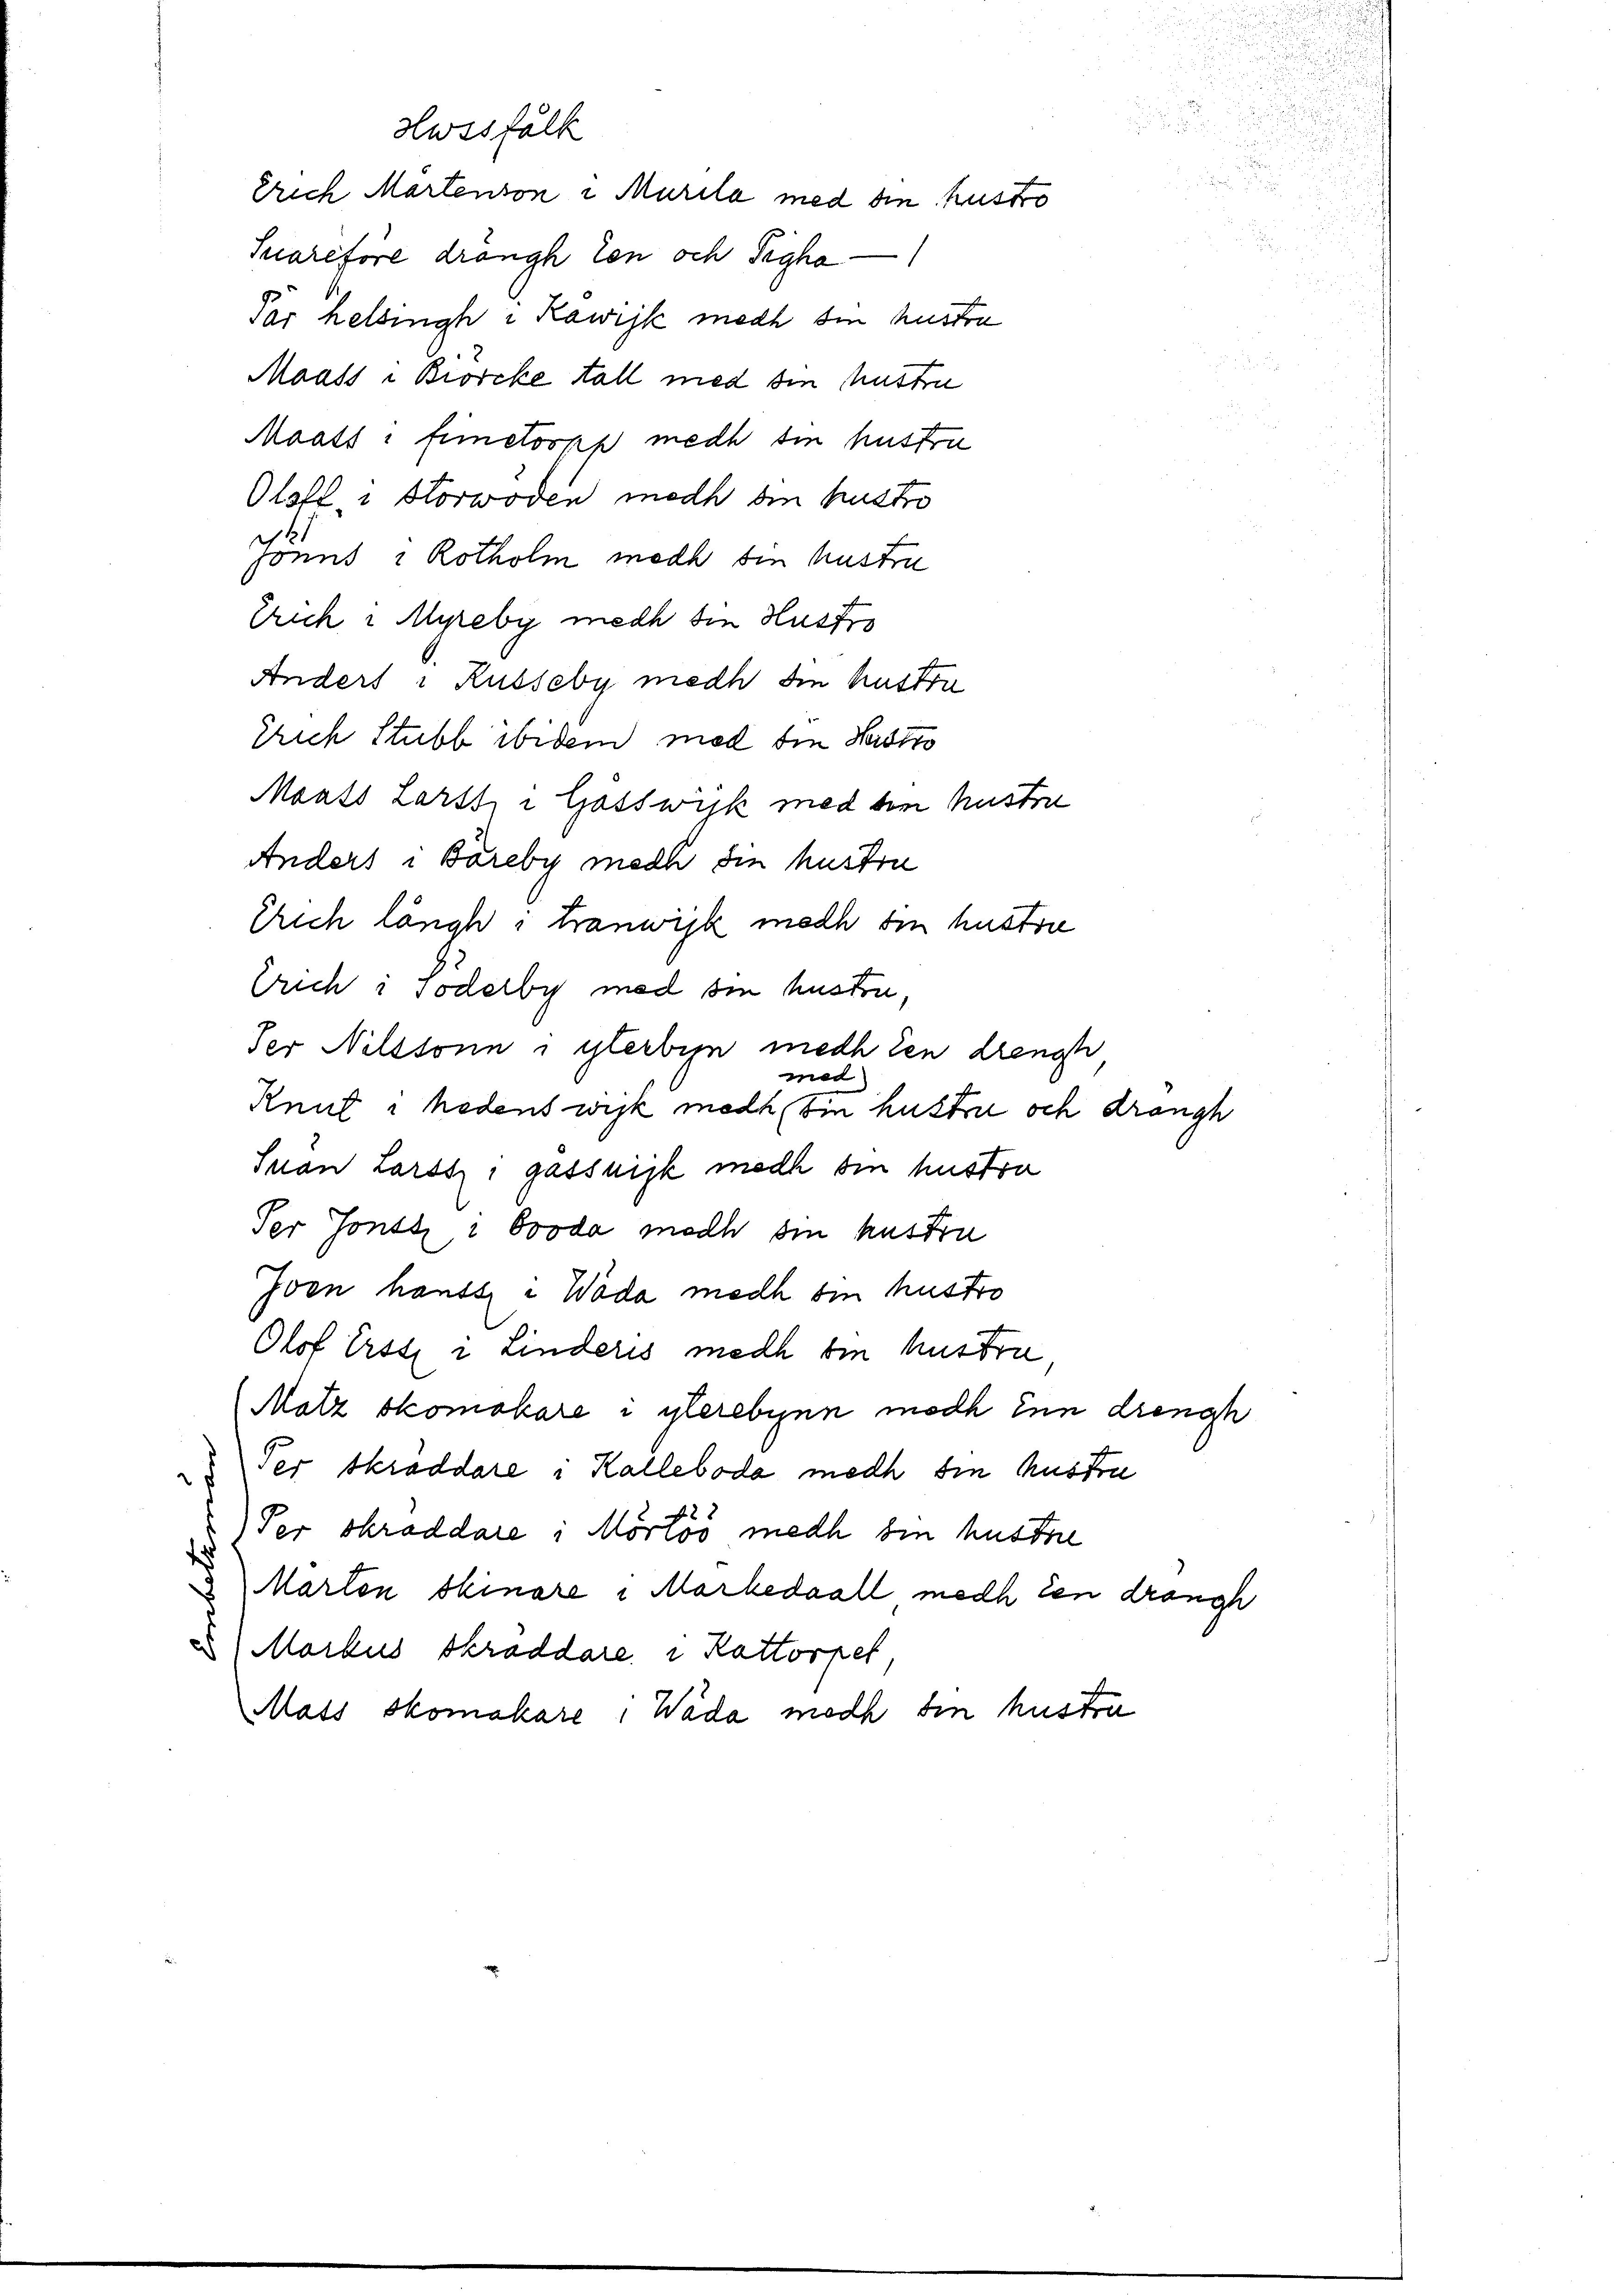 Hwssfålk
Erich Mårtenson i Murila med sin hustro
Suareföre drängh Een och Pigha — 1
Pär helsingh i Kåwijk medh sin hustru
Maass i Biörcke tall med sin hustru
Maats i fimetorpp medh sin hustru
Oloff i Storwöden medh sin hustro
Jönns i Rotholm medh sin hustru
Erich i Myreby medh sin Hustro
Anders i Kusseby medh sin hustru
Erich Stubb ibidem med sin Hustro
Maats Larss i Gåsswijk med sin hustru
Anders i Båreby medh sin hustru
Erich långh i tranwijk medh sin hustru
Erich i Söderby med sin hustru,
Per Nilssonn i yterbyn medh Een drengh,
med
Knut i hedens wijk medh sin hustru och drängh
Suän Larss i gåssuijk medh sin hustru
Per Jonss i booda medh sin hustru
Joen hanss i Wåda medh sin hustro
Olof Erss i Linderis medh sin hustru,
Matz skomakare i yterebynn medh Enn drengh
Per skräddare i Kalleboda medh sin hustru
Per skräddare i Mörtöö medh sin hustru
Mårten skinare i Markedaall, medh Een drängh
Markus skräddare i Kattorpet,
Mass skomakare i Wäda medh sin hustru